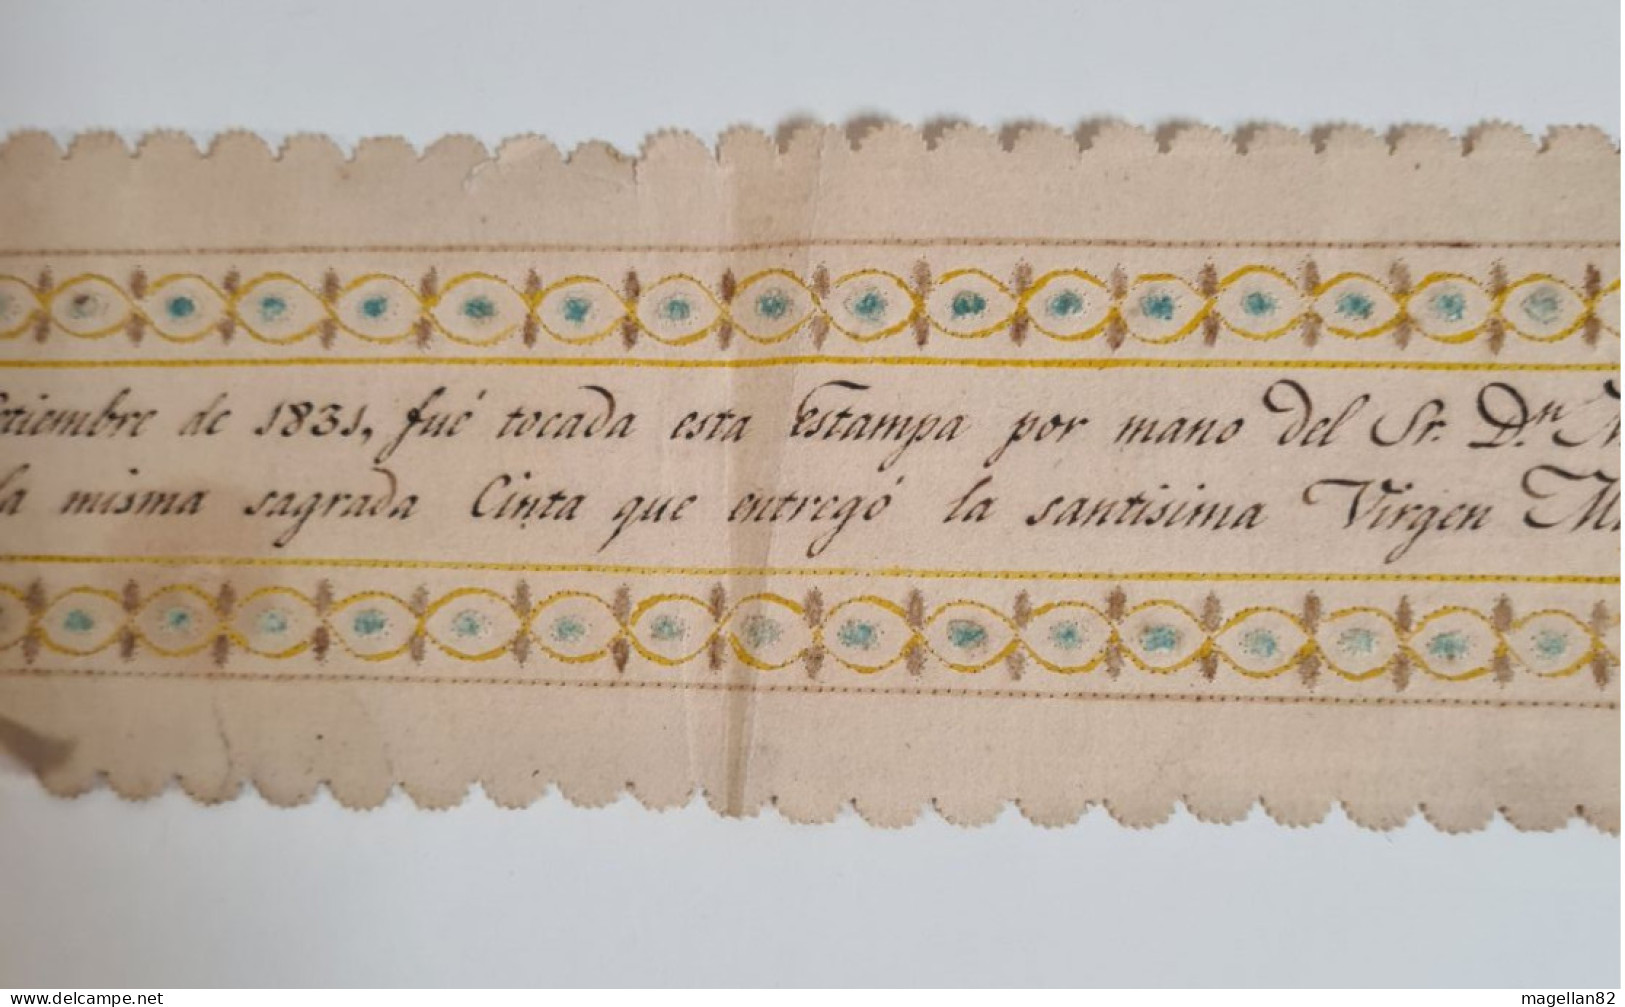 etiembre de 1831, fué tocada esta Estampa por mano del Sr. D.n
la misma sagrada Cinta que entregó la santisima Virgen
www.delcampe.net
magellan82